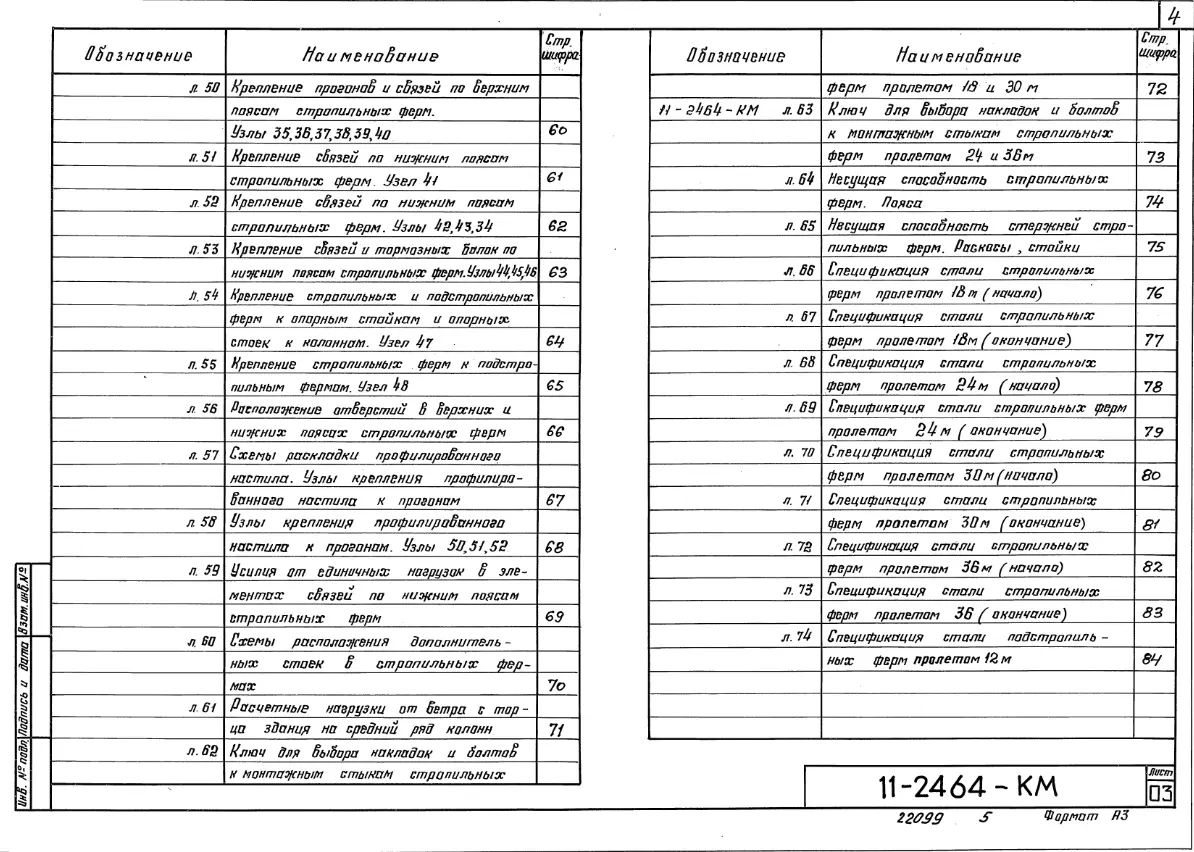 4
Обозначение Наименование Стр. шифра
л. 50 Крепление прогонов и связей по верхним
поясам стропильных ферм.
Узлы 35,36,37,38,39,40 60
л. 51 Крепление связей по нижним поясам
стропильных ферм. Узел 41 61
л. 52 Крепление связей по нижним поясам
стропильных ферм. Узлы 42,43,34 62
л. 53 Крепление связей и тормозных балок по
нижним поясам стропильных ферм. Узлы 44,45,46 63
л. 54 Крепление стропильных и подстропильных
ферм к опорным стойкам и опорных
стоек к колоннам. Узел 47 64
л. 55 Крепление стропильных ферм к подстро-
пильным фермам. Узел 48 65
л. 56 Расположение отверстий в верхних и
нижних поясах стропильных ферм 66
л. 57 Схемы раскладки профилированного
настила. Узлы крепления профилиро-
ванного настила к прогонам 67
л. 58 Узлы крепления профилированного
настила к прогонам. Узлы 50,51,52 68
л. 59 Усилия от единичных нагрузок в эле-
ментах связей по нижним поясам
стропильных ферм 69
л. 60 Схемы расположения дополнитель-
ных стоек в стропильных фер-
мах 70
л. 61 Расчетные нагрузки от ветра с тор-
ца здания на средний ряд колонн 71
л. 62 Ключ для выбора накладок и болтов
к монтажным стыкам стропильных
Обозначение Наименование Стр. шифра
ферм пролетом 18 и 30 м 72
11-2464-КМ л. 63 Ключ для выбора накладок и болтов
к монтажным стыкам стропильных
ферм пролетом 24 и 36м 73
л. 64 Несущая способность стропильных
ферм. Пояса 74
л. 65 Несущая способность стержней стро-
пильных ферм. Раскосы, стойки 75
л. 66 Спецификация стали стропильных
ферм пролетом 18 м (начало) 76
л. 67 Спецификация стали стропильных
ферм пролетом 18м (окончание) 77
л. 68 Спецификация стали стропильных
ферм пролетом 24м (начало) 78
л. 69 Спецификация стали стропильных ферм
пролетом 24м (окончание) 79
л. 70 Спецификация стали стропильных
ферм пролетом 30м (начало) 80
л. 71 Спецификация стали стропильных
ферм пролетом 30м (окончание) 81
л. 72 Спецификация стали стропильных
ферм пролетом 36м (начало) 82
л. 73 Спецификация стали стропильных
ферм пролетом 36 (окончание) 83
л. 74 Спецификация стали подстропиль-
ных ферм пролетом 12м 84
Инв. № подл. Подпись и дата Взам. инв. №
11-2464-КМ
Лист
03
22099 5 Формат А3